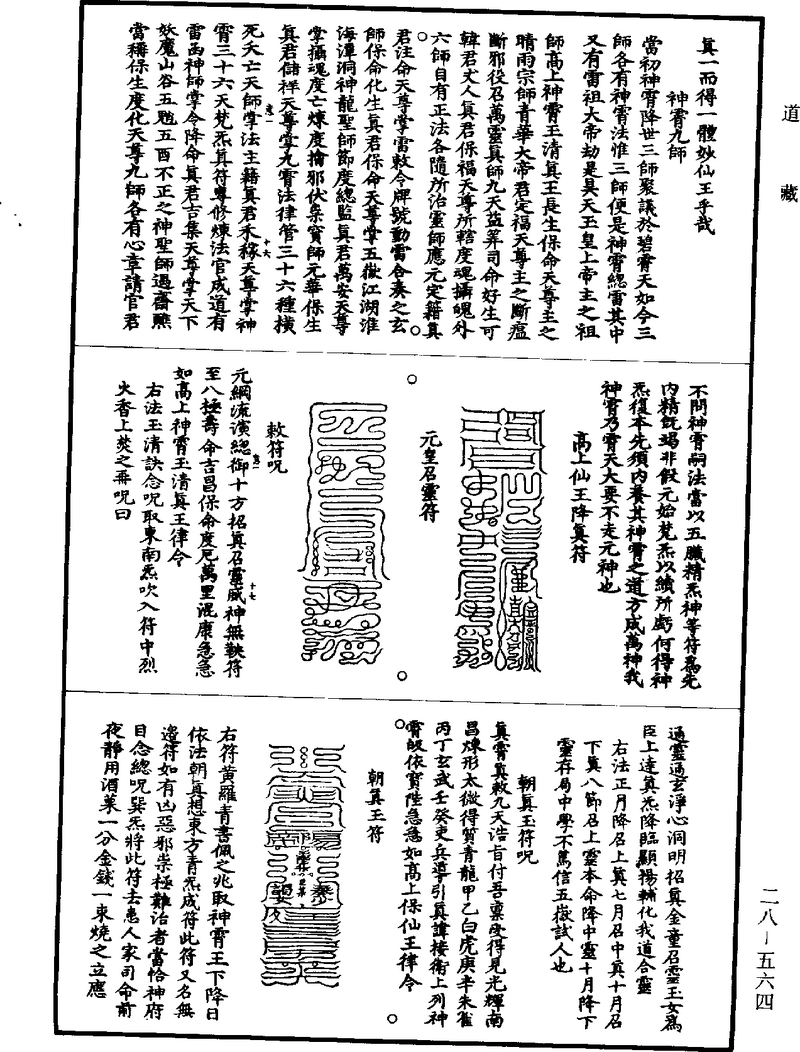 道藏
真一而得一體妙仙王乎哉
神霄九師
當初神霄降世三師聚議於碧霄天如今三
師各有神霄法惟三師便是神霄總雷其中
又有雷祖大帝劫是昊天王皇上帝主之祖
師高上神霄玉清真王長生保命天尊主之
晴雨宗師青華大帝君定福天尊主之斷瘟
斷邪役召萬靈真師九天益筭司命好生可
韓君丈人真君保福天尊所轄度魂攝魄外
六師自有正法各隨所治靈師應元定籍真
君注命天尊掌雷敕令牌號動雷合奏之玄
師保命化生真君保命天尊掌五嶽江湖淮
海潭洞神龍聖師節度總監真君萬安天尊
掌攝魂度亡煉度擒邪伏梟寶師元華保生
真君儲祥天尊掌九霄法律管三十六種橫
死夭亡天師掌法主籍真君禾稼天尊掌神
霄三十六天梵炁真符專修煉法官成道有
雷函神師掌令降命真君吉集天尊掌天下
妖魔山谷五魈五酉不正之神聖師過齋醮
當稱保生度化天尊九師各有心章請官君
不問神霄嗣法當以五臟精炁神等符為先
內精既竭非假元始梵炁以續所虧何得神
炁復本先須內養其神霄之道方成萬神我
神霄乃霄天大要不走元神也
高上仙王降真符
元皇召靈符
敕符呪
元綱流演總御十方招真召靈威神無鞅符
至八極壽命吉昌保命度厄萬里混康急急
如高上神霄玉清真王律令
右法玉清訣念呪取東南炁吹入符中烈
火香上焚之再呪曰
通靈通玄淨心洞明招真金童召靈玉女為
臣上達真炁降臨顯揚輔化我道合靈
右法正月降召上真七月召中真十月召
下真八節召上靈本命降中靈十月降下
靈存局中學不篤信五嶽試人也
朝真玉符呪
真霄真敕九天浩旨付吾稟受得見光輝南
昌煉形太微得質青龍甲乙白虎庚辛朱雀
丙丁玄武壬癸吏兵導引真諱接衛上列神
霄皈依寶陛急急如高上保仙王律令
朝真王符
右符黃羅青書佩之兆取神霄王下降日
依法朝真想東方青炁成符此符又名無
邊符如有凶惡邪祟極難治者當恰神府
目念總呪巽炁將此符去患人家司命前
夜靜用酒菓一分金錢一束燒之立應
二八－五六四